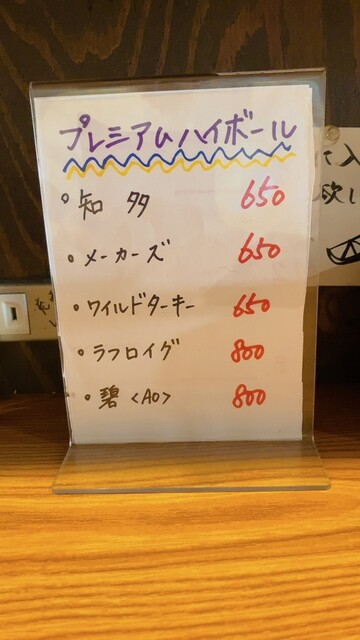 プレミアムハイボール
。知多 650
。メーカーズ 650
。ワイルドターキー 650
。ラフロイグ 800
。碧<AO> 800
入
欲し